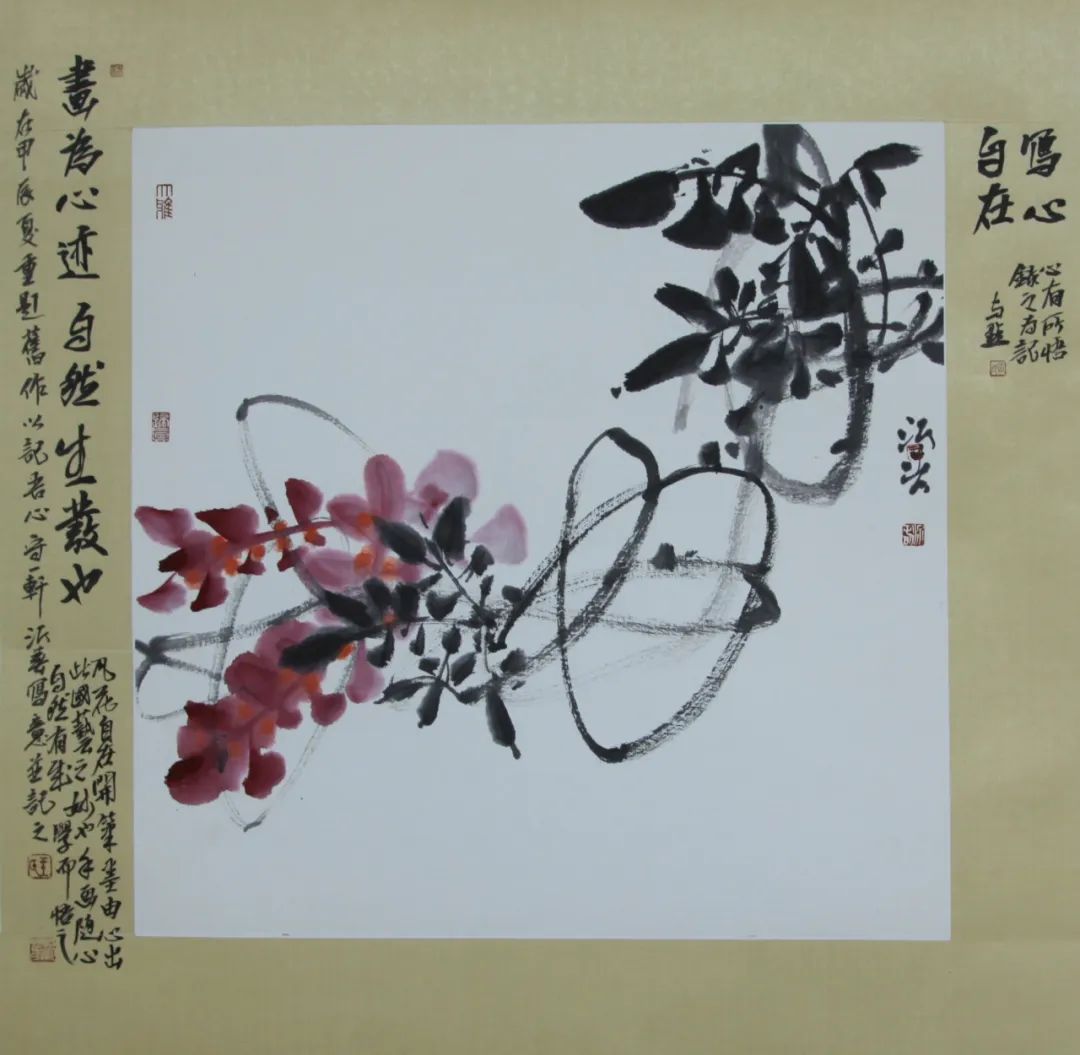 寫心
自在
心有所悟
錄之为記
大雅
畫為心迹自然生發也
歲在甲辰夏重題舊作以記 心守一軒 寫意並記之
风花自在開筆墨由心出
此國藝之妙也 随心
自然有成學而悟之